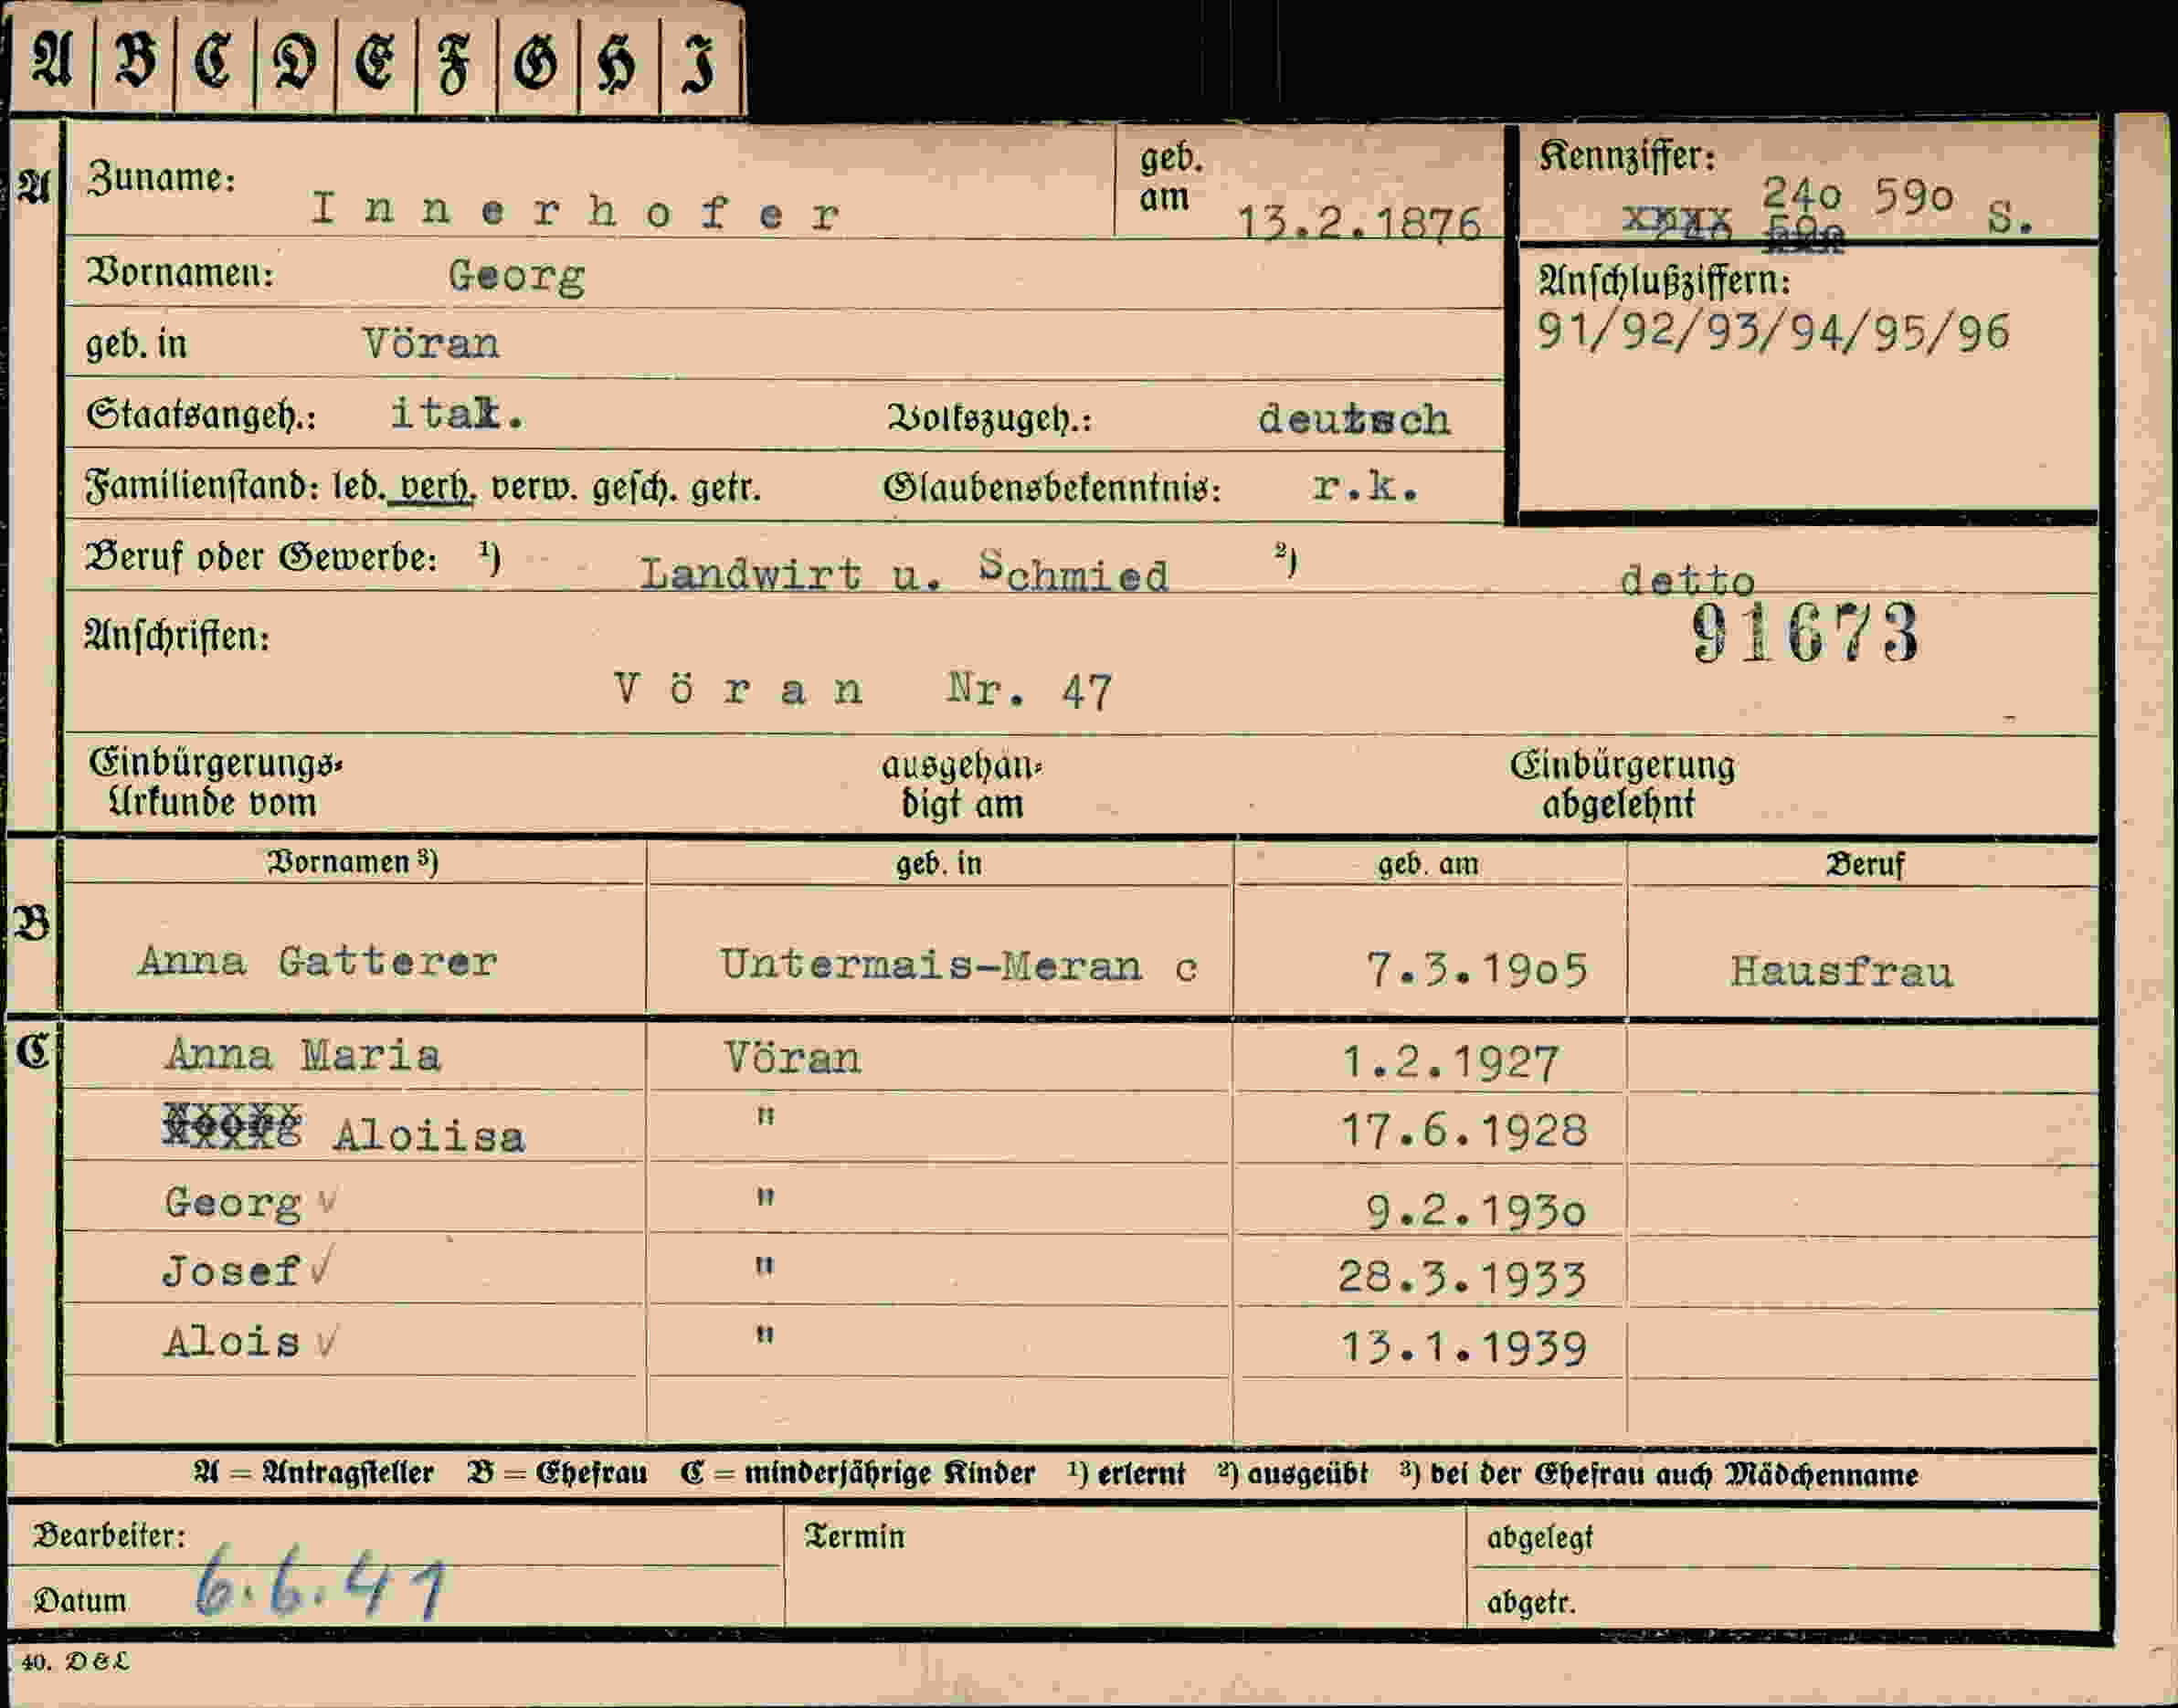 A B C D E F G H I
A Zuname: Innerhofer geb. am 13.2.1876
Kennziffer: 24o 59o S.
Vornamen: Georg
Anschlußziffern:
91/92/93/94/95/96
geb. in Vöran
Staatsangeh.: ital. Volkszugeh.: deutsch
Familienstand: led. verh. verw. gesch. getr. Glaubensbekenntnis: r.k.
Beruf oder Gewerbe: ¹) Landwirt u. Schmied ²) detto
91673
Anschriften:
Vöran Nr. 47
Einbürgerungs- ausgehän- Einbürgerung
Urkunde vom digt am abgelehnt
Vornamen ³) geb. in geb. am Beruf
B Anna Gatterer Untermais-Meran c 7.3.19o5 Hausfrau
C Anna Maria Vöran 1.2.1927
Georg Aloiisa " 17.6.1928
Georg ✓ " 9.2.193o
Josef ✓ " 28.3.1933
Alois ✓ " 13.1.1939
A = Antragsteller B = Ehefrau C = minderjährige Kinder ¹) erlernt ²) ausgeübt ³) bei der Ehefrau auch Mädchenname
Bearbeiter: Termin abgelegt
Datum 6.6.41 abgetr.
40. D & L